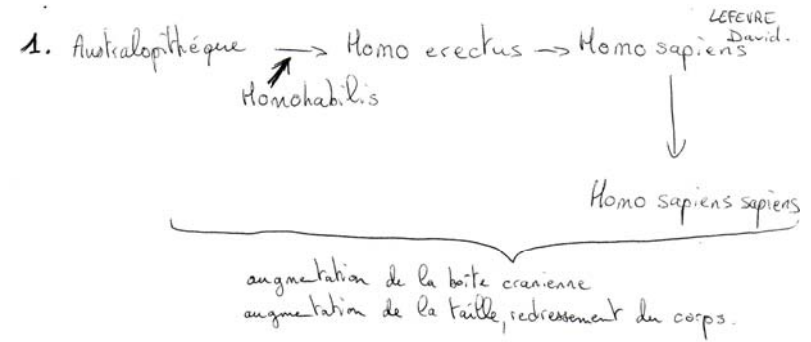 LEFEVRE
David.
1. Australopithéque → Homo erectus → Homo sapiens
Homohabilis
Homo sapiens sapiens
augmentation de la boîte cranienne
augmentation de la taille, redressement du corps.